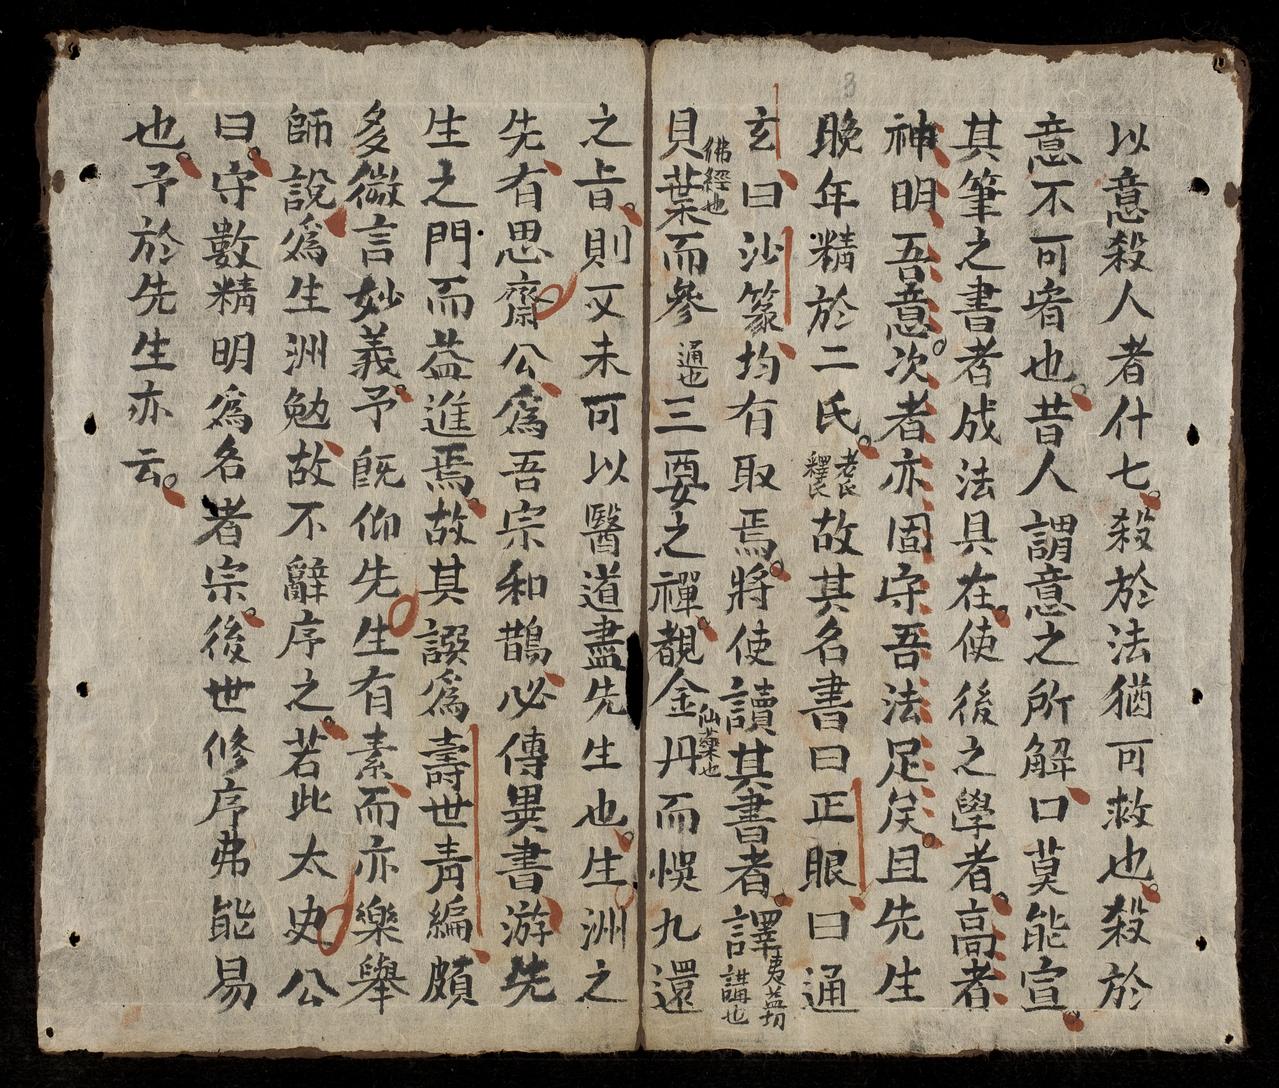 以意殺人者什七殺於法猶可救也殺於
意不可宥也昔人謂意之所解口莫能宣
其筆之書者成法具在使後之學者高者
神明吾意次者亦固守吾法足矣且先生
晚年精於二氏老氏釋氏故其名書曰正眼曰通
玄曰沙篆均有取焉將使讀其書者譯夷益切講也
貝葉佛經也而參通也三要之禪覩金丹仙藥也而悞九還
之旨則又未可以醫道盡先生也生洲之
先有思齋公為吾宗和鵲必傳異書游先
生之門而益進焉故其譔為壽世青編頗
多微言妙義予既仰先生有素而亦樂舉
師說為生洲勉故不辭序之若此太史公
曰守數精明為名者宗後世修序弗能易
也予於先生亦云
3